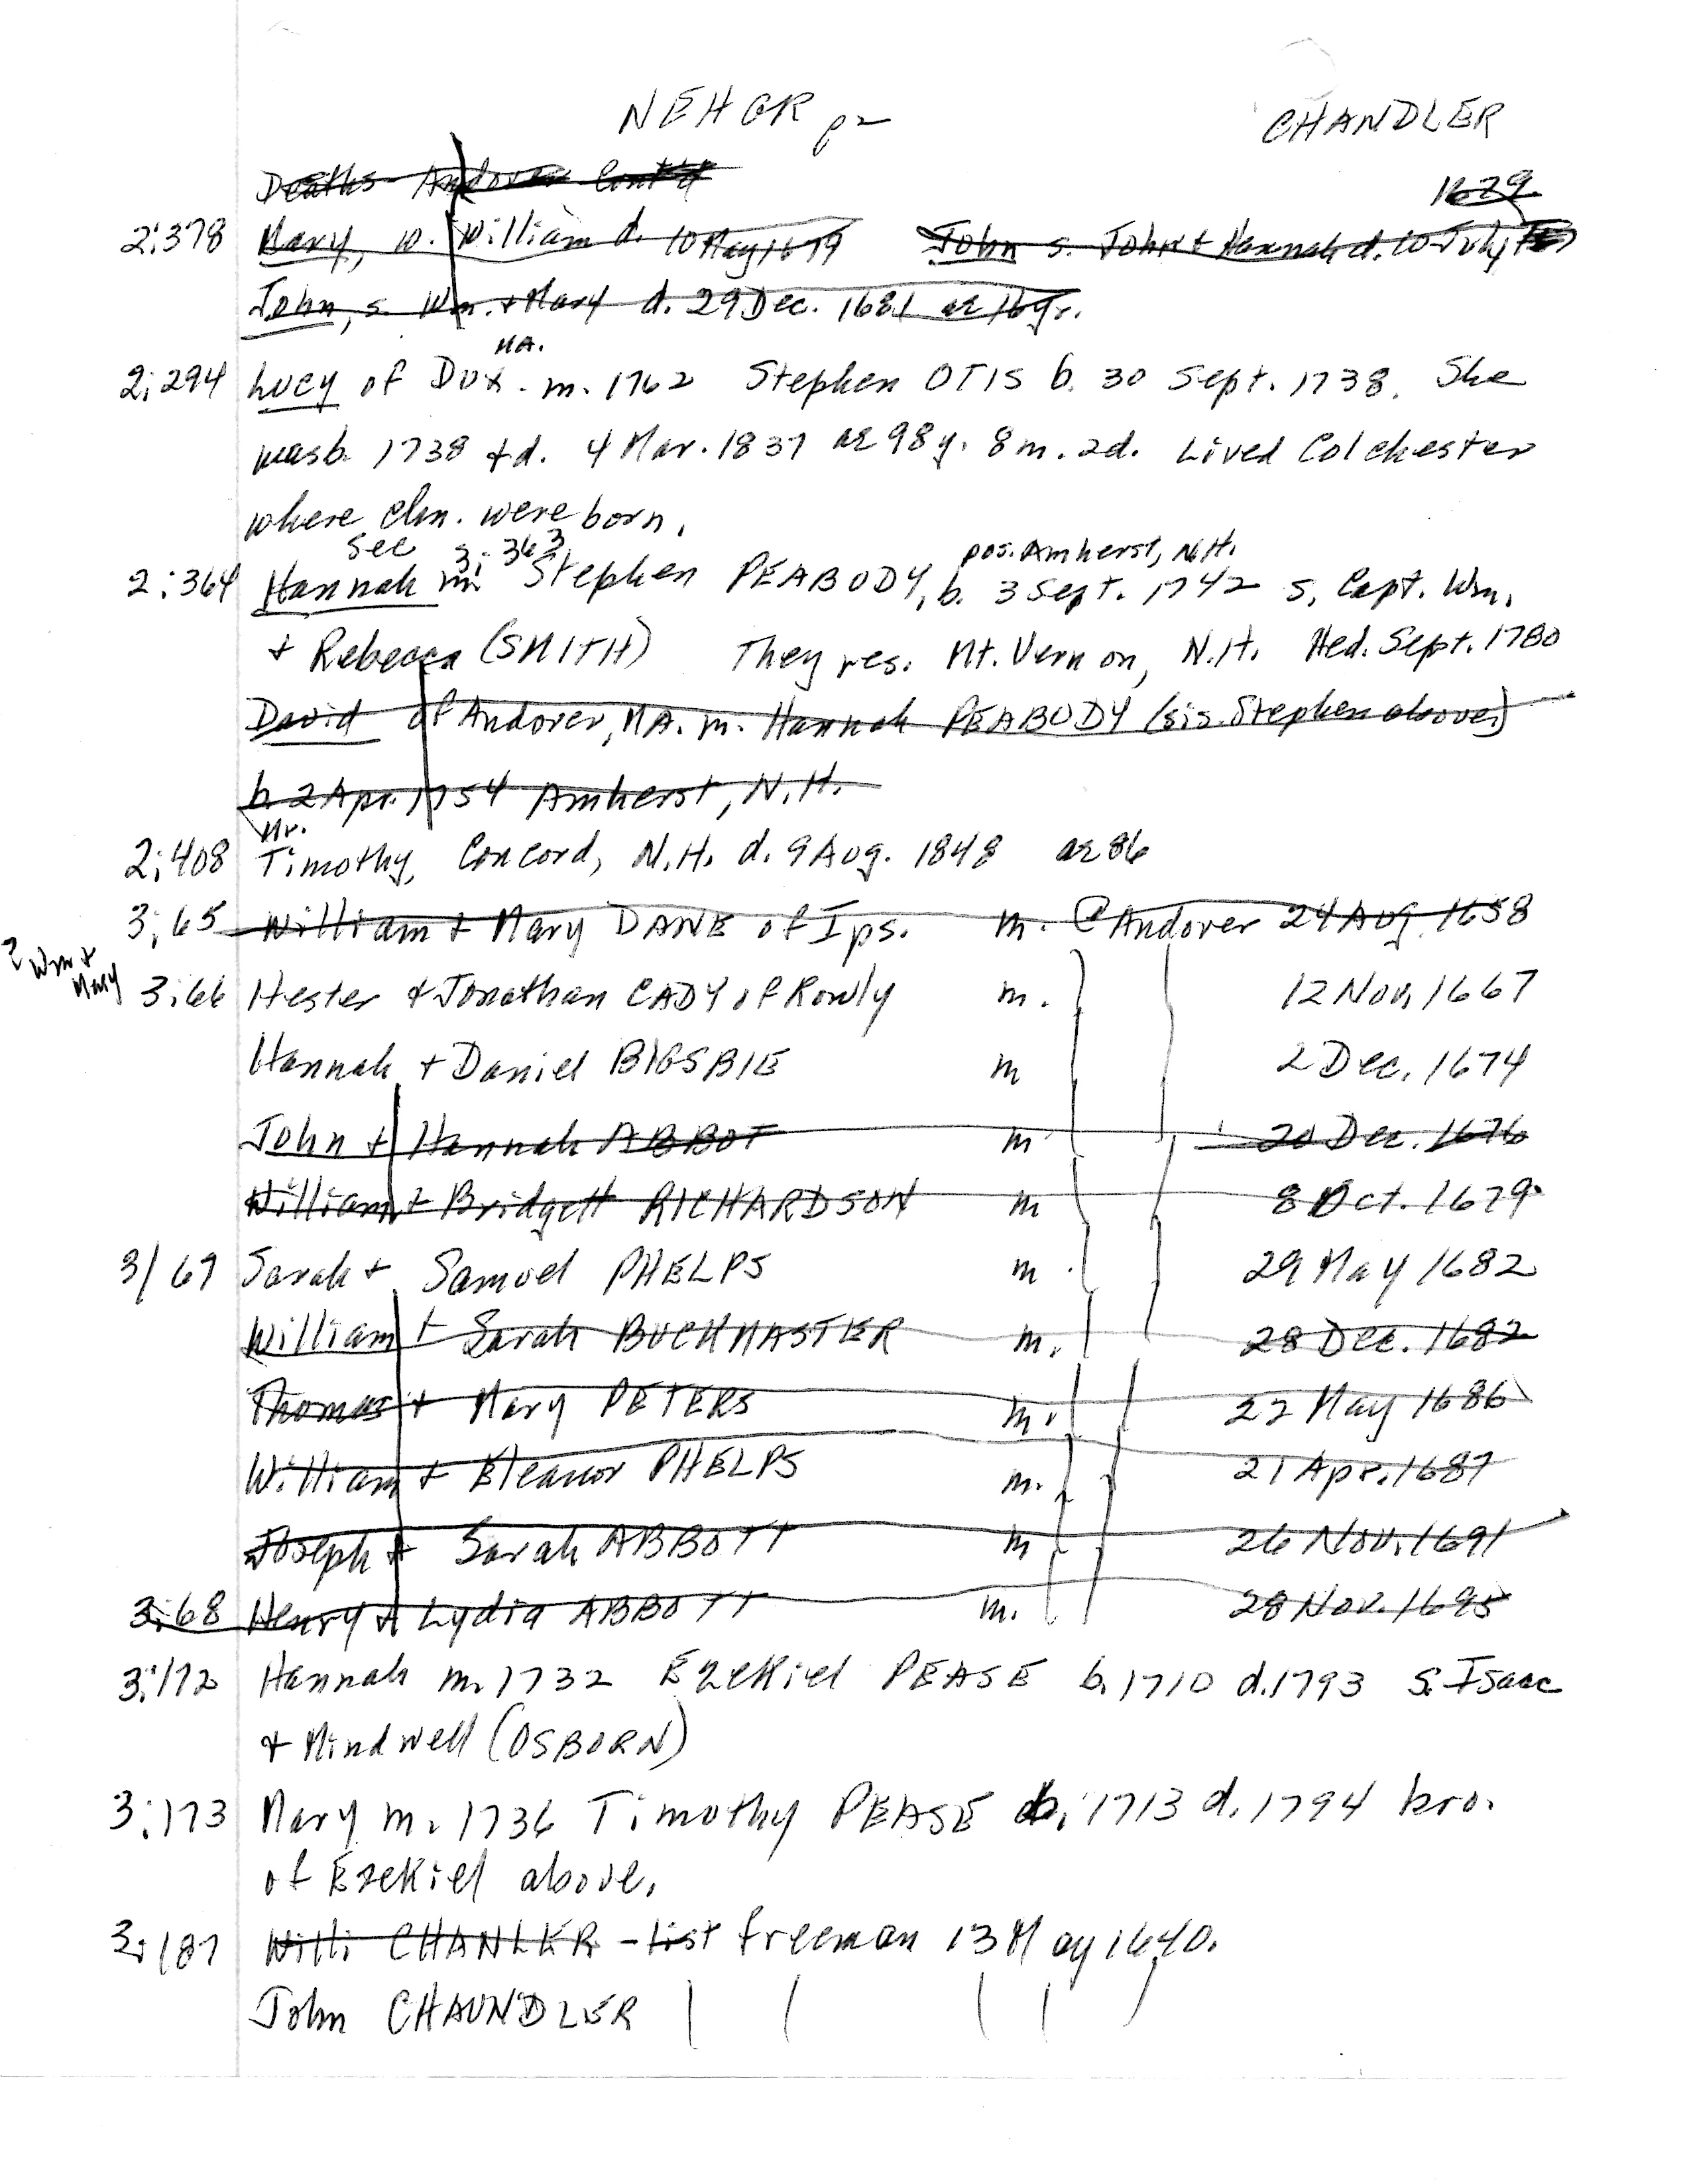 NEHGR p2 CHANDLER
Deaths Andover Cont'd
1679
2:378 Mary, w. William d. 10 May 1679 John s. John & Hannah d. 10 July
John, s. Wm. & Mary d. 29 Dec. 1681 ae 16 yr.
MA.
2:294 Lucy of Dux. m. 1762 Stephen OTIS b. 30 Sept. 1738. She
was b. 1738 & d. 4 Mar. 1837 ae 98 y. 8 m. 2d. Lived Colchester
where chn. were born.
see 3:363 pos. Amherst, N.H.
2:364 Hannah m. Stephen PEABODY, b. 3 Sept. 1742 s. Capt. Wm.
& Rebecca (SMITH) They res. Mt. Vernon, N.H. He d. Sept. 1780
David of Andover, MA. m. Hannah PEABODY (sis. Stephen above)
b. 2 Apr. 1754 Amherst, N.H.
Mr.
2:408 Timothy, Concord, N.H. d. 9 Aug. 1848 ae 86
3:65 William & Mary DANE of Ips. m. @ Andover 24 Aug. 1658
? Wm &
Mary
3:66 Hester & Jonathan CADY of Rowly m. 12 Nov. 1667
Hannah & Daniel BIGSBIE m 2 Dec. 1674
John & Hannah ABBOT m 20 Dec. 1676
William & Bridgett RICHARDSON m 8 Oct. 1679
3/67 Sarah & Samuel PHELPS m 29 May 1682
William & Sarah BUCKMASTER m. 28 Dec. 1682
Thomas & Mary PETERS m. 22 May 1686
William & Eleanor PHELPS m. 21 Apr. 1687
Joseph & Sarah ABBOTT m 26 Nov. 1691
3:68 Henry & Lydia ABBOTT m. 28 Nov. 1695
3:172 Hannah m. 1732 Ezekiel PEASE b. 1710 d. 1793 s. Isaac
& Mindwell (OSBORN)
3:173 Mary m. 1736 Timothy PEASE b. 1713 d. 1794 bro.
of Ezekiel above.
3:187 Willi CHANLER - list freeman 13 May 1640.
John CHAUNDLER